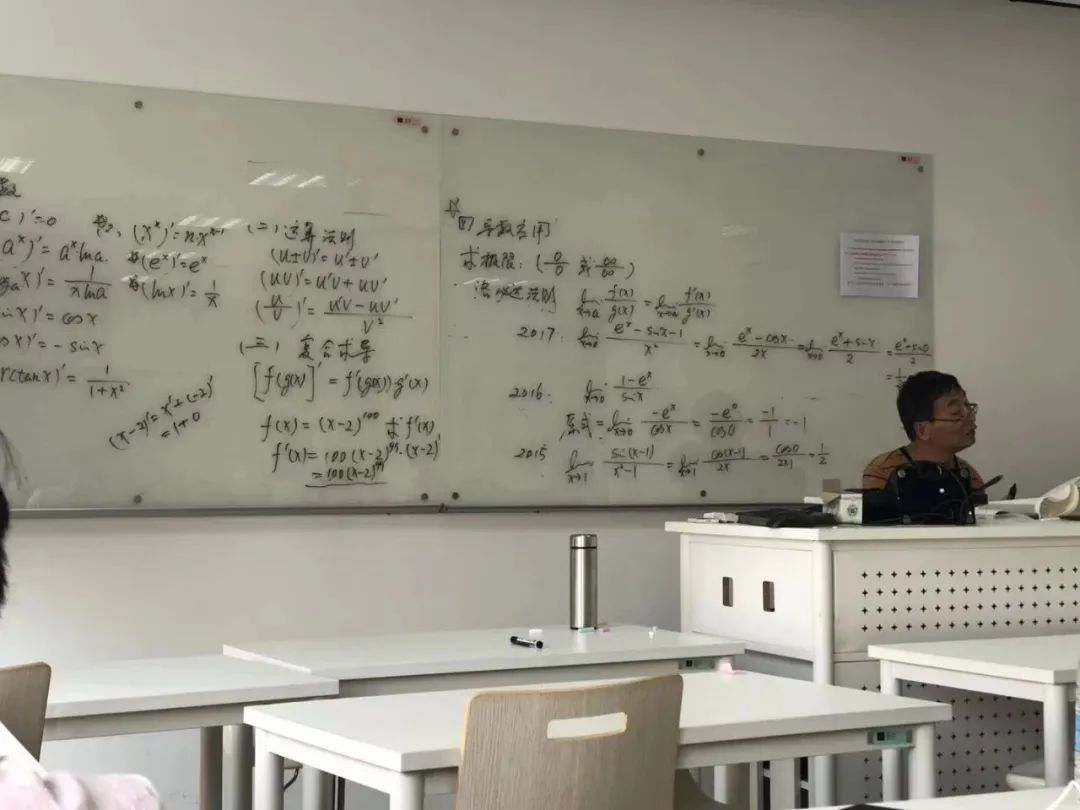 数
(C)'=0
(a^x)'=a^x lna
(log_a x)'=\frac{1}{x lna}
(sinx)'=cosx
(cosx)'=-sinx
(arctanx)'=\frac{1}{1+x²}
(x^x)'=nx^{x-1}
(e^x)'=e^x
(lnx)'=\frac{1}{x}
(x-2)'=x'+(-2)'
=1+0
(二)运算法则
(u±v)'=u'±v'
(uv)'=u'v+uv'
(\frac{u}{v})'=\frac{u'v-uv'}{v²}
(三)复合求导
[f(g(x)]'=f'(g(x))·g'(x)
f(x)=(x-2)^{100} 求f'(x)
f'(x)=100(x-2)^{99}·(x-2)'
=100(x-2)^{99}
☆
四 导数应用
求极限:(\frac{0}{0} 或 \frac{∞}{∞})
洛必达法则 lim_{x→a} \frac{f(x)}{g(x)}=lim_{x→a} \frac{f'(x)}{g'(x)}
2017: lim_{x→0} \frac{e^x-sinx-1}{x²}=lim_{x→0} \frac{e^x-cosx}{2x}=lim_{x→0} \frac{e^x+sinx}{2}=\frac{e^0+sin0}{2}
2016: lim_{x→0} \frac{1-e^x}{sinx}
原式=lim_{x→0} \frac{-e^x}{cosx}=\frac{-e^0}{cos0}=\frac{-1}{1}=-1
2015 lim_{x→1} \frac{sin(x-1)}{x²-1}=lim_{x→1} \frac{cos(x-1)}{2x}=\frac{cos0}{2×1}=\frac{1}{2}